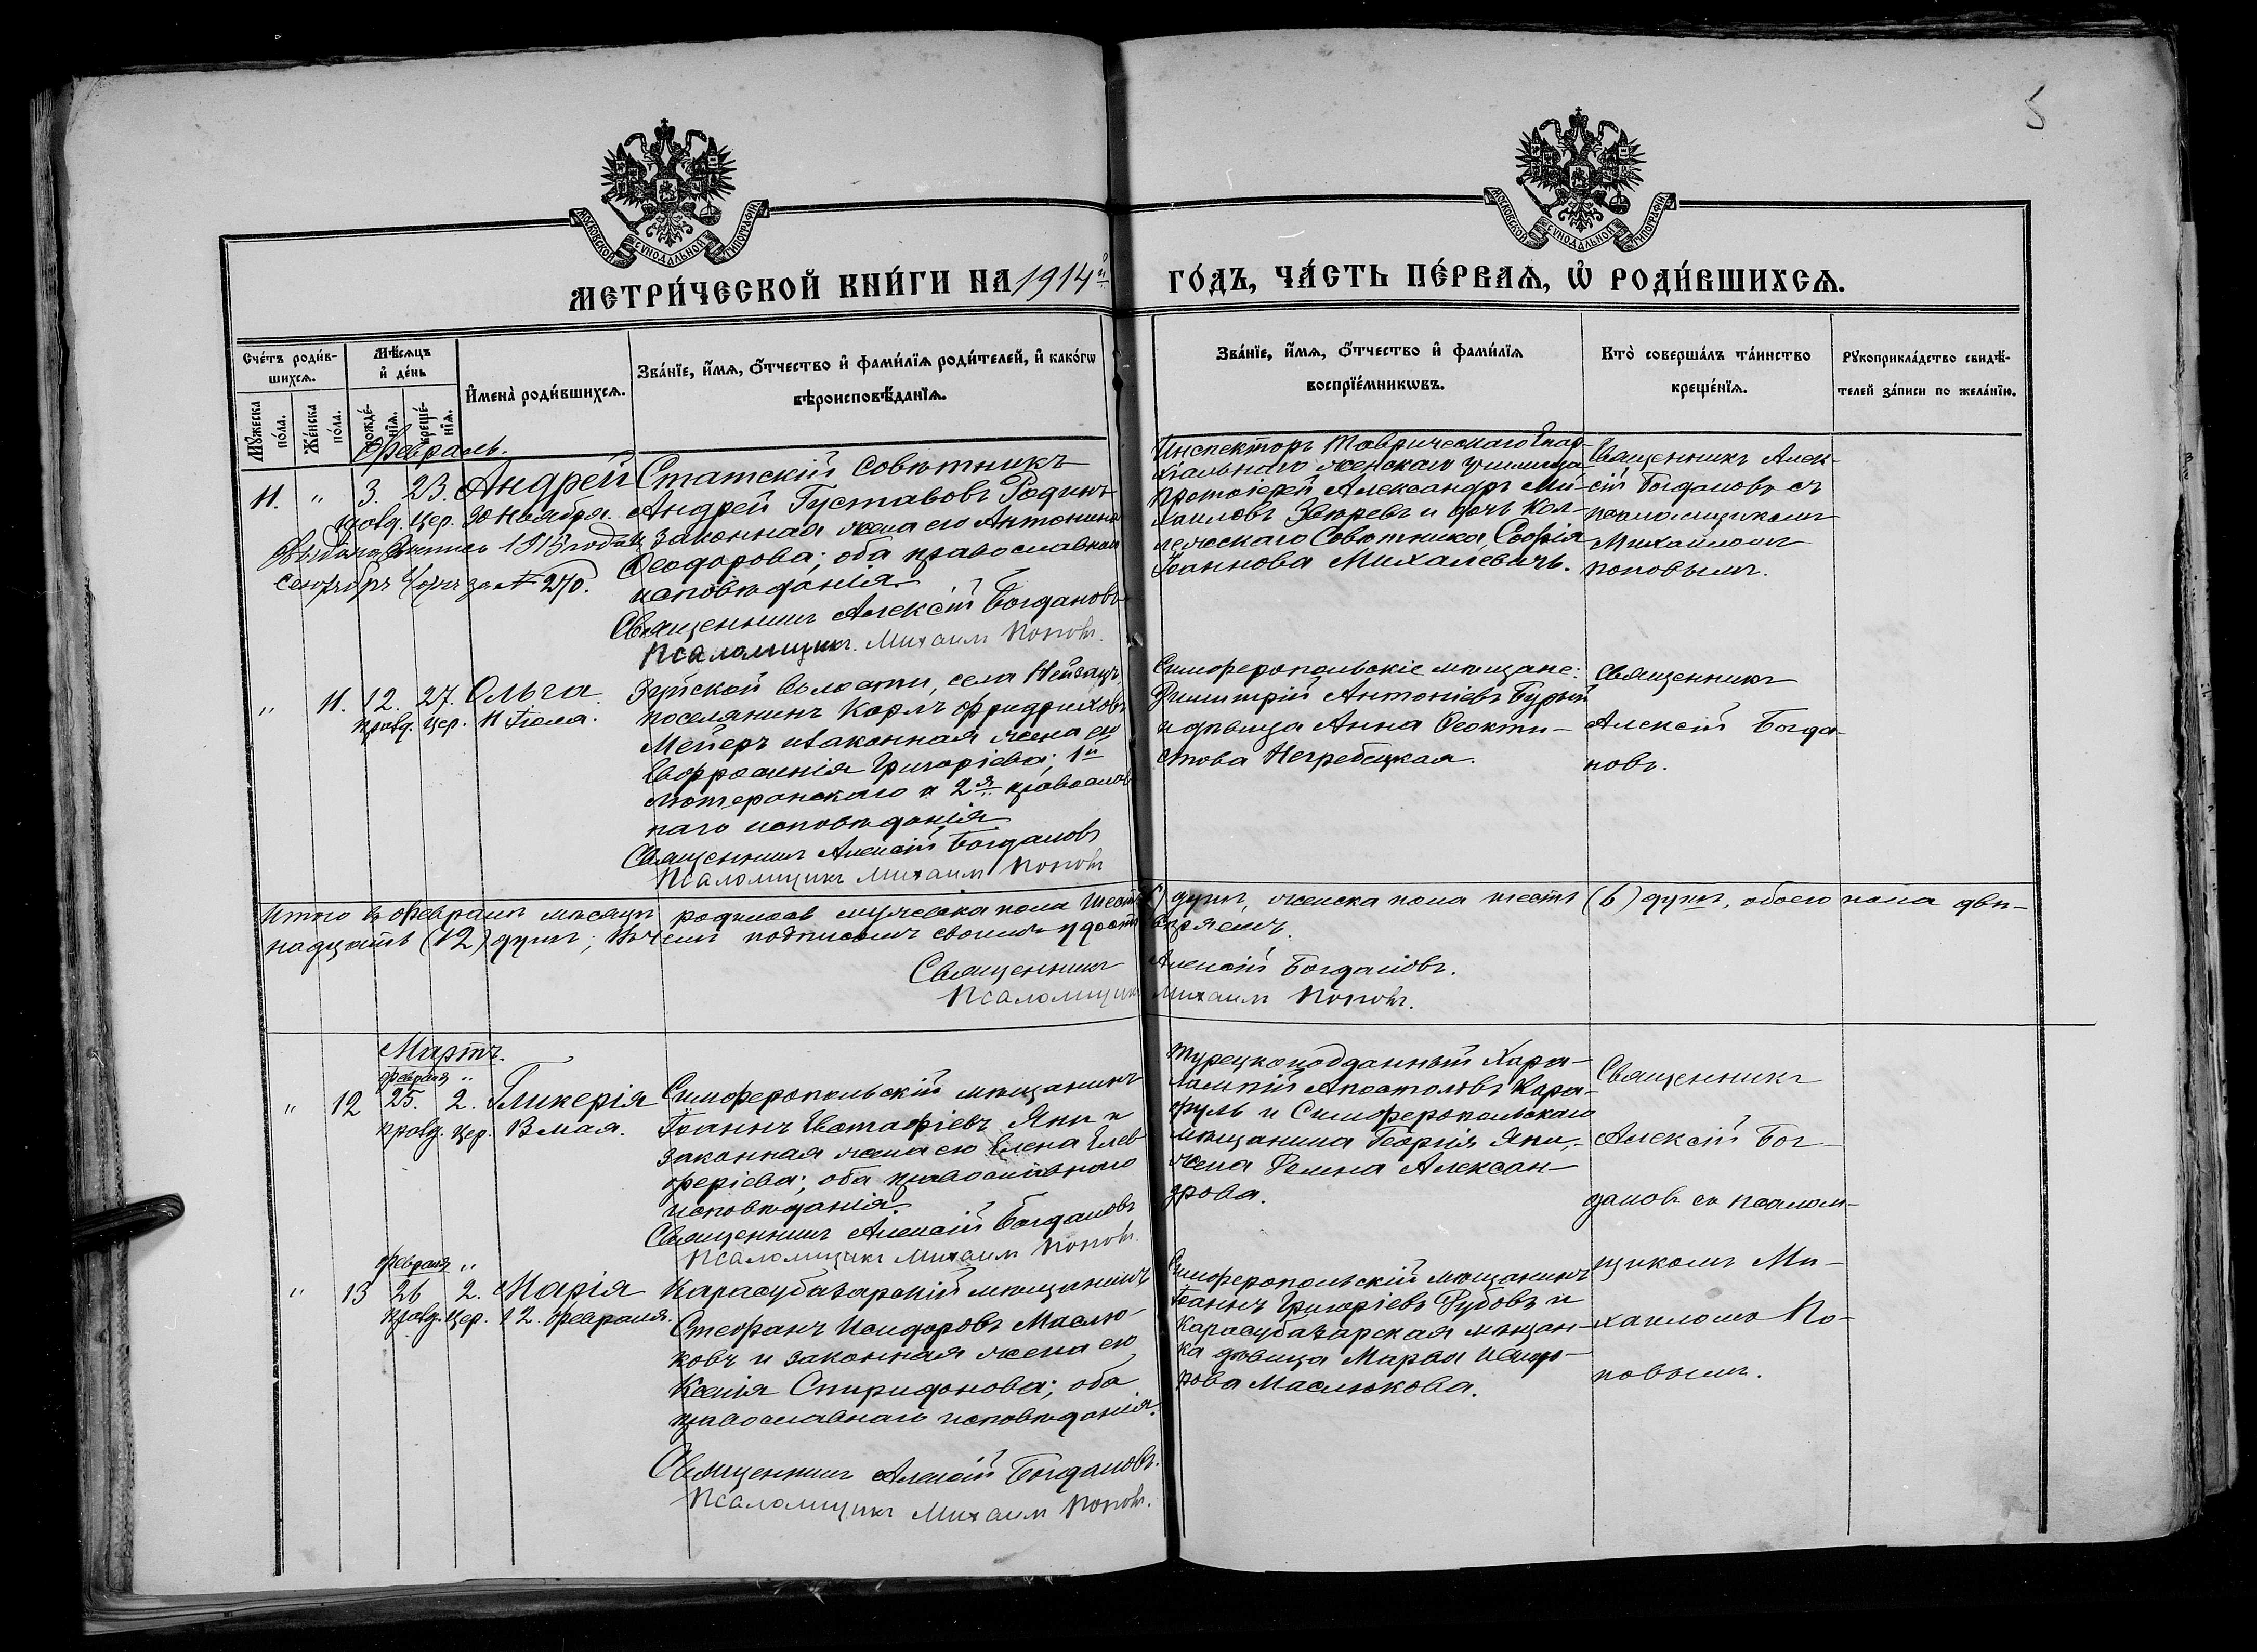 5
МОСКОВСКОЙ СУНОДАЛЬНОЙ ТИПОГРАФІИ
МОСКОВСКОЙ СУНОДАЛЬНОЙ ТИПОГРАФІИ
МЕТРИ́ЧЕСКОЙ КНИ́ГИ НА 1914й
ГО́ДЪ, ЧА́СТЬ ПЕ́РВАѦ, Ѡ҆ РОДИ́ВШИХСѦ.
Сче́тъ роди́в-
шихсѧ.
Мꙋ́жеска по́ла.
Же́нска по́ла.
Мѣ́сѧцъ
и҆ де́нь
рожде́-
нїѧ.
креще́-
нїѧ.
И҆мена̀ роди́вшихсѧ.
Зва́нїе, и҆́мѧ, ѻ҆́тчество и҆ фами́лїѧ роди́телей, и҆ како́гѡ
вѣроисповѣ́данїѧ.
Зва́нїе, и҆́мѧ, ѻ҆́тчество и҆ фами́лїѧ
воспрїе́мникѡвъ.
Кто̀ соверша́лъ та́инство
креще́нїѧ.
Рꙋкоприкла́дство свидѣ́-
телей за́писи по жела́нїю.
Февраль.
11. " 3. 23. Андрей
правд. Цер. 30 Ноября.
1913 года
за № 270.
Статскій Совѣтникъ
Андрей Густавовъ Родинъ
и законная жена его Антонина
Ѳеодорова; оба православнаго
исповѣданія
Священникъ Алексій Богдановъ
Псаломщикъ Михаилъ Поповъ.
Инспекторъ Таврическаго Епар-
хіальнаго женскаго училища
протоіерей Александръ Ми-
хаиловъ Звѣревъ и дочь Кол-
лежскаго Совѣтника, Софія
Іоаннова Михалевичъ.
Священникъ Алек-
сій Богдановъ съ
псаломщикомъ
Михаиломъ
Поповымъ.
" 11. 12. 27. Ольга
правд. Цер. 11 Іюля.
Зуйской волости, села Нейзацъ,
поселянинъ Карлъ Фридриховъ
Мейеръ и законная жена его
Евфросинія Григоріева; 1й
лютеранскаго и 2я православ
наго исповѣданія
Священникъ Алексій Богдановъ
Псаломщикъ Михаилъ Поповъ
Симферопольскіе мѣщане:
Димитрій Антоніевъ Бурый
и дѣвица Анна Ѳеокти-
стова Негребецкая.
Священникъ
Алексій Богда-
новъ.
Итого въ Февралѣ мѣсяцѣ родилось мужеска пола шесть (6) душъ, женска пола шесть (6) душъ, обоего пола двѣ-
надцать (12) душъ; въ чемъ подписомъ своимъ удостовѣряемъ.
Священникъ Алексій Богдановъ.
Псаломщикъ Михаилъ Поповъ.
Мартъ.
Февраля "
" 12 25. 2. Гликерія
правд. Цер. 13 мая.
Симферопольскій мѣщанинъ
Іоаннъ Евстафіевъ Япи и
законная жена его Елена Елев
ѳеріева; оба православнаго
исповѣданія
Священникъ Алексій Богдановъ
Псаломщикъ Михаилъ Поповъ.
Турецкоподданный Хара-
лампій Апостоловъ Кара-
фуль и Симферопольскаго
мѣщанина Георгія Япи,
жена Елена Алексан-
дрова.
Священникъ
Алексій Бог-
дановъ съ псалом-
щикомъ Ми-
хаиломъ По-
повымъ.
Февраля "
" 13 26 2. Марія
правд. Цер. 12. Февраля.
Карасубазарскій мѣщанинъ
Стефанъ Исидоровъ Маслю
ковъ и законная жена его
Ксенія Спиридонова; оба
православнаго исповѣданія.
Священникъ Алексій Богдановъ.
Псаломщикъ Михаилъ Поповъ.
Симферопольскій мѣщанинъ
Іоаннъ Григоріевъ Рубовъ и
Карасубазарская мѣщан-
ка дѣвица Марѳа Исидо-
рова Маслюкова.